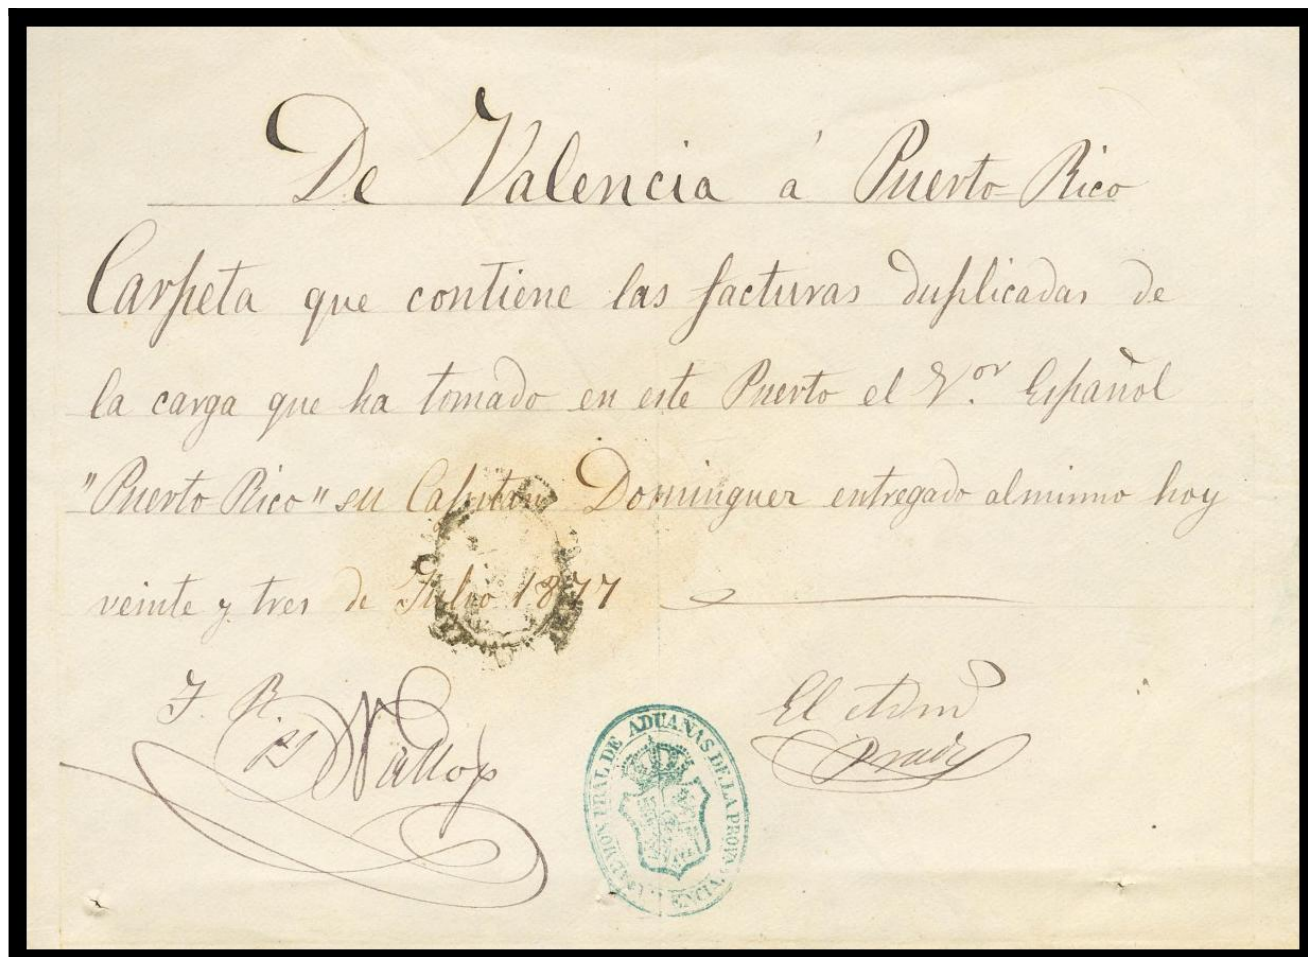 De Valencia á Puerto Rico
Carpeta que contiene las facturas duplicadas de
la carga que ha tomado en este Puerto el Vor. Español
"Puerto Rico" su Capitan Dominguez entregado al mismo hoy
veinte y tres de Julio 1877
El Admor
ADMON PRAL DE ADUANAS DE LA PROVA. VALENCIA